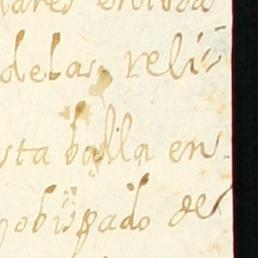 delas reli-
sta balla en
obispado de